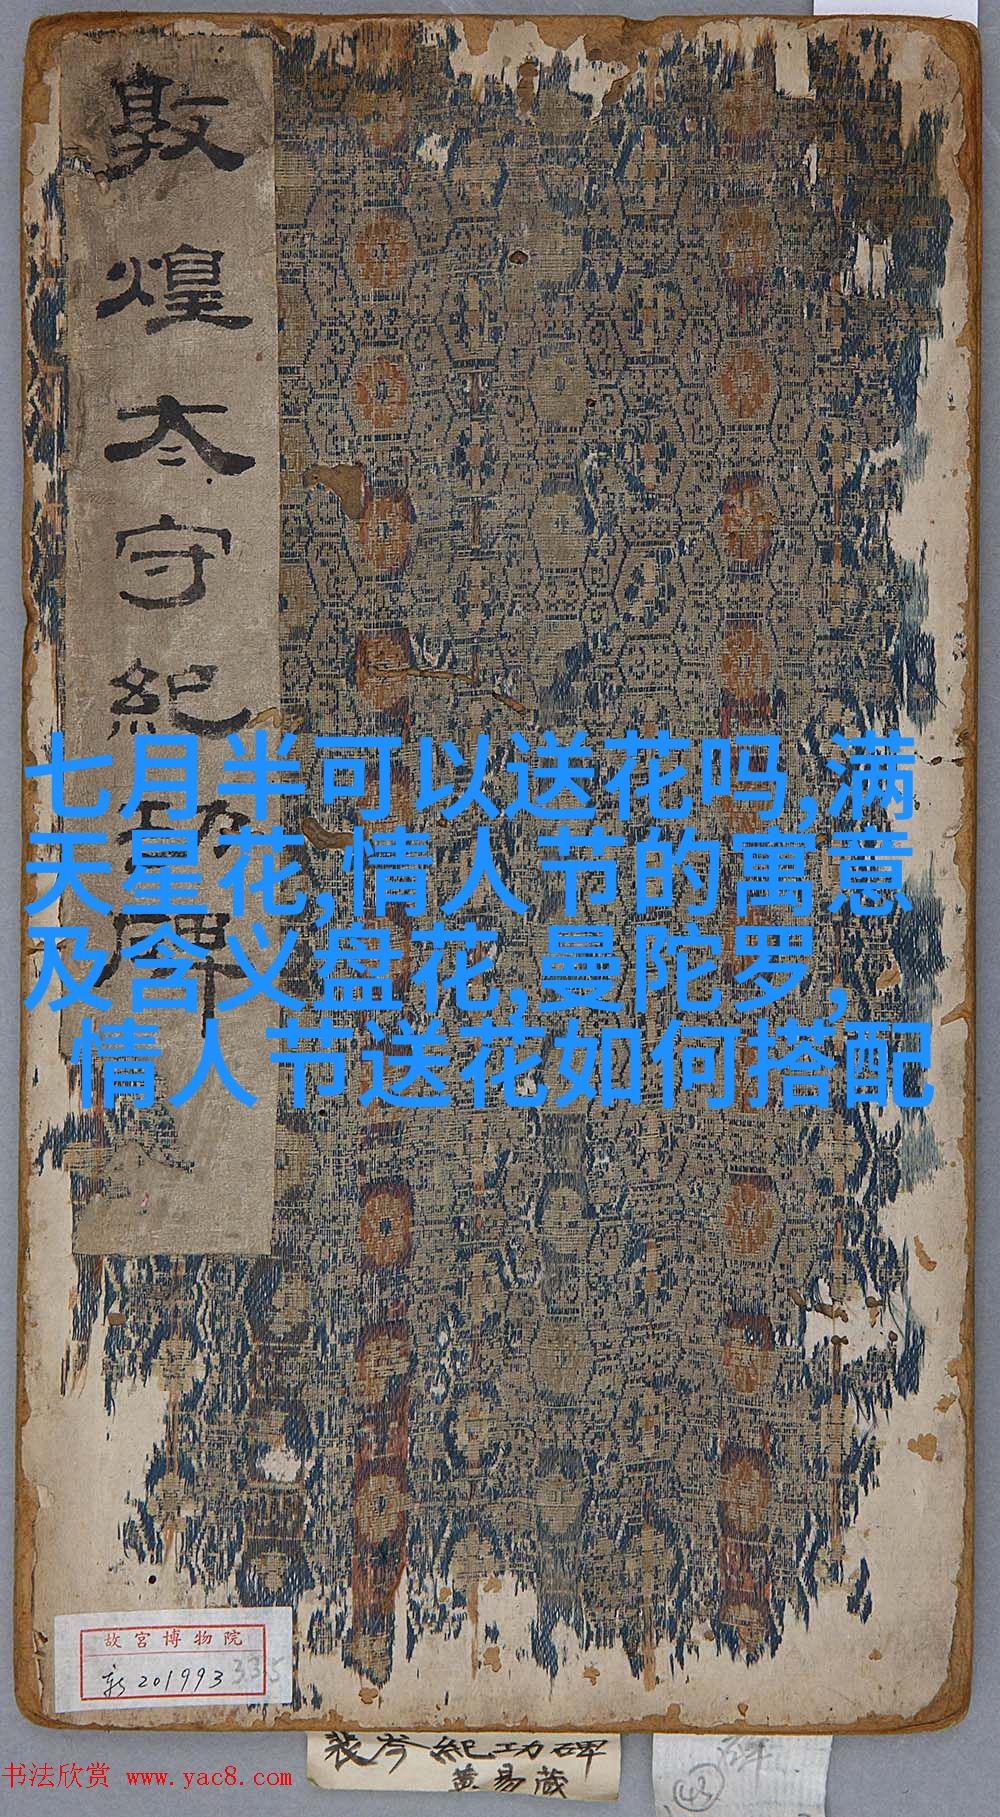 敦煌太守紀功碑
七月半可以送花吗,满
天星花,情人节的寓意
及含义盘花,曼陀罗,
情人节送花如何搭配
故宫博物院
新201993
335
裴岑紀功碑
黄易藏
43
书法欣赏 www.yac8.com